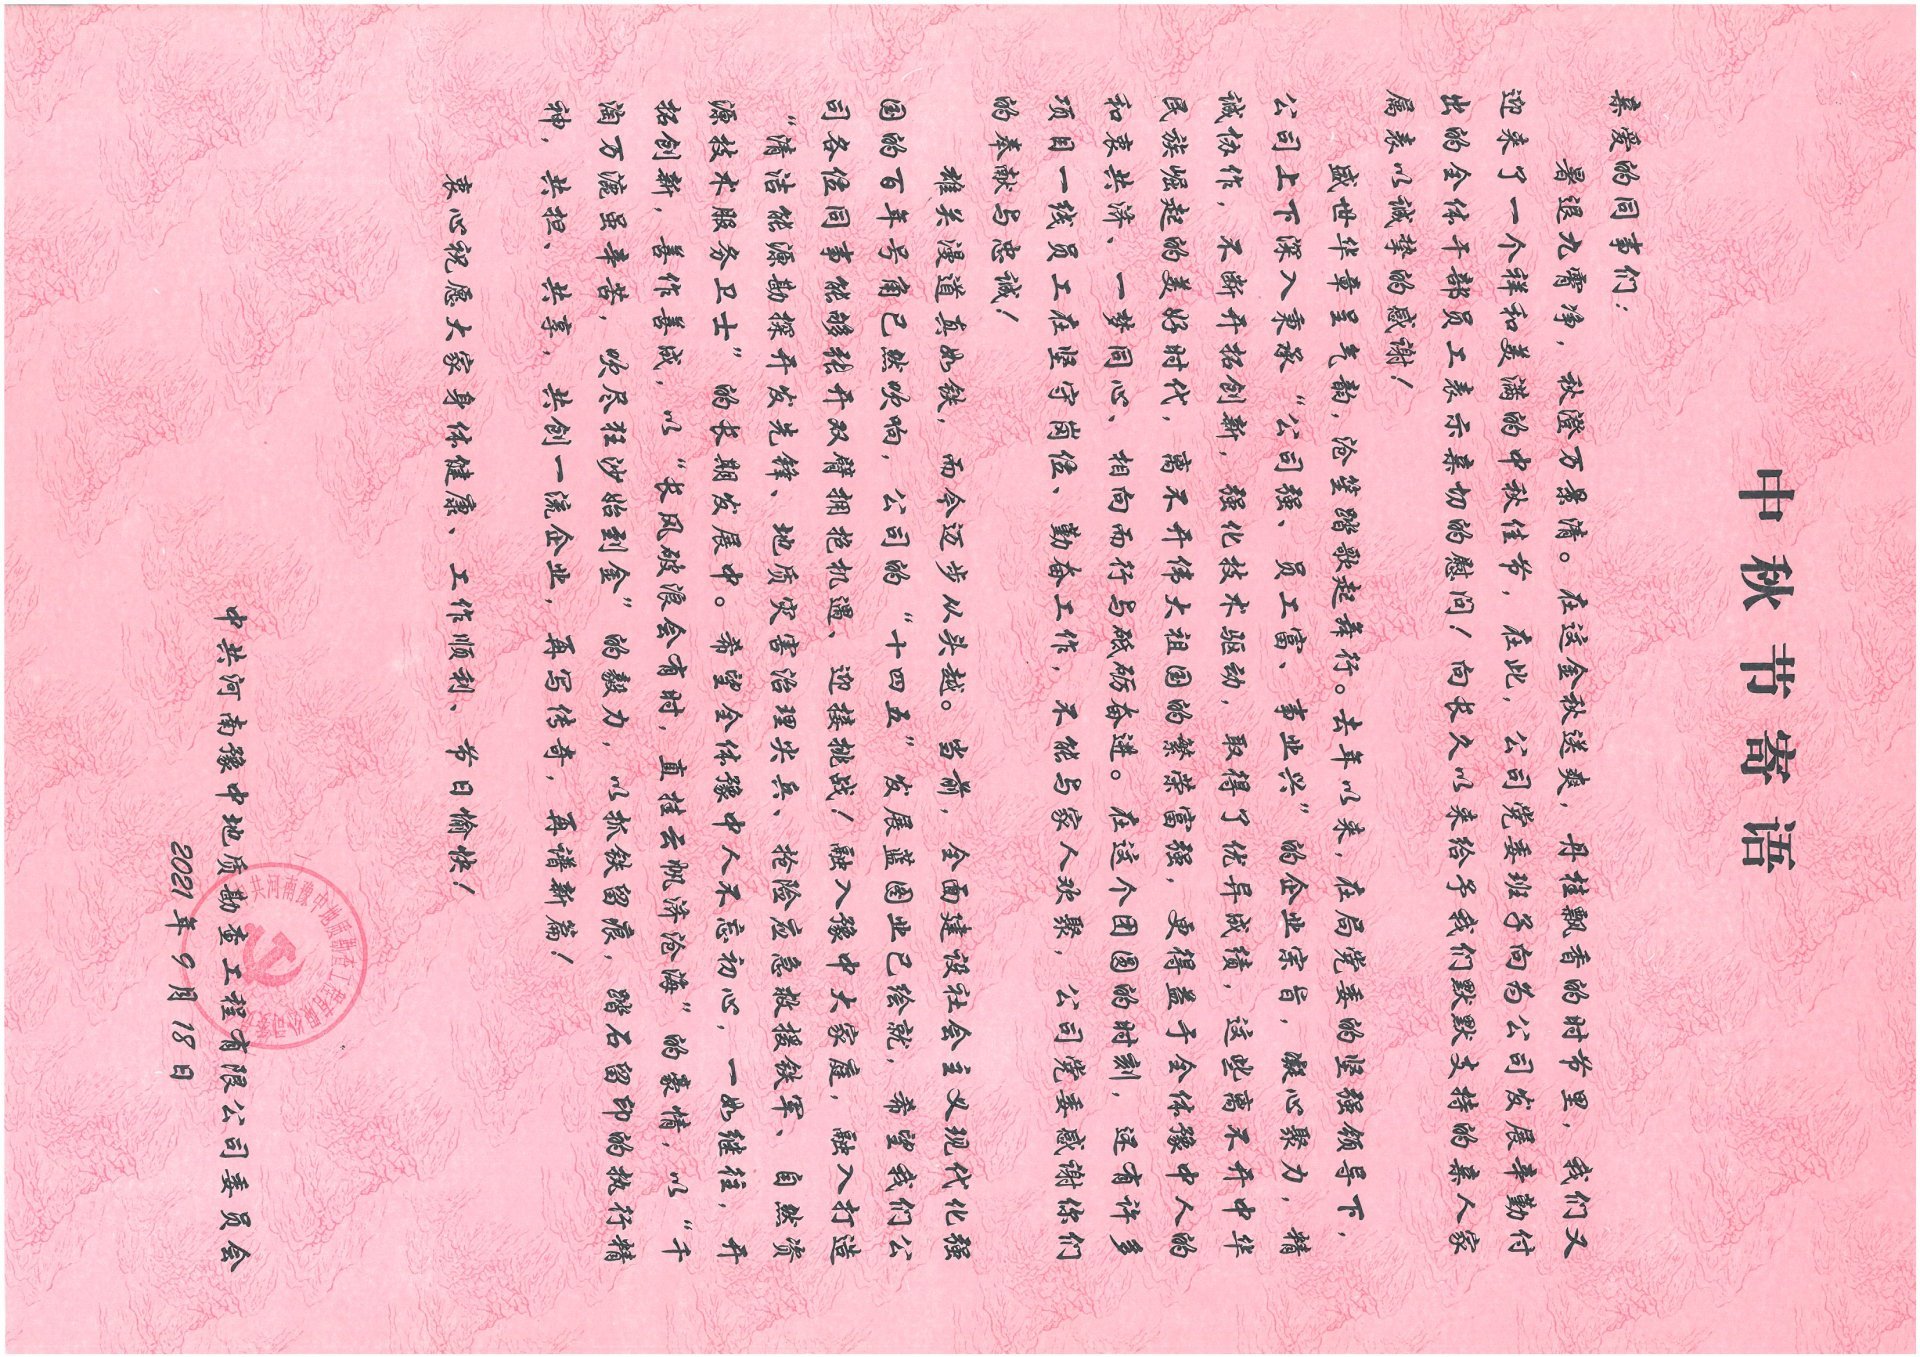 中秋节寄语
亲爱的同事们：
暑退九霄净，秋澄万景清。在这金秋送爽，丹桂飘香的时节里，我们又
迎来了一个祥和美满的中秋佳节，在此，公司党委班子向为公司发展辛勤付
出的全体干部员工表示亲切的慰问！向长久以来给予我们默默支持的亲人家
属表以诚挚的感谢！
盛世华章呈气韵，沧笙踏歌起舞行。去年以来，在局党委的坚强领导下，
公司上下深入秉承“公司强、员工富、事业兴”的企业宗旨，凝心聚力，精
诚协作，不断开拓创新，强化技术驱动，取得了优异成绩，这些离不开中华
民族崛起的美好时代，离不开伟大祖国的繁荣富强，更得益于全体豫中人的
和衷共济、一梦同心、相向而行与砥砺奋进。在这个团圆的时刻，还有许多
项目一线员工在坚守岗位、勤奋工作，不能与家人欢聚，公司党委感谢你们
的奉献与忠诚！
雄关漫道真如铁，而今迈步从头越。当前，全面建设社会主义现代化强
国的百年号角已然吹响，公司的“十四五”发展蓝图业已绘就，希望我们公
司各位同事能够张开双臂拥抱机遇、迎接挑战！融入豫中大家庭，融入打造
“清洁能源勘探开发先锋、地质灾害治理尖兵、抢险应急救援铁军、自然资
源技术服务卫士”的长期发展中。希望全体豫中人不忘初心，一如继往，开
拓创新，善作善成，以“长风破浪会有时，直挂云帆济沧海”的豪情，以“千
淘万漉虽辛苦，吹尽狂沙始到金”的毅力，以抓铁留痕，踏石留印的执行精
神，共担、共享，共创一流企业，再写传奇，再谱新篇！
衷心祝愿大家身体健康、工作顺利、节日愉快！
中共河南豫中地质勘查工程有限公司委员会
2021年9月18日